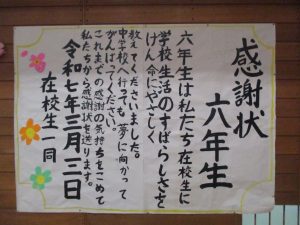 感謝状
六年生
六年生は私たち在校生に
学校生活のすばらしさを
けん命にやさしく
教えてくださいました。
中学校へ行っても夢に向かって
がんばってください。
これまでの感謝の気持ちをこめて
私たちから感謝状を送ります。
令和七年三月三日
在校生一同